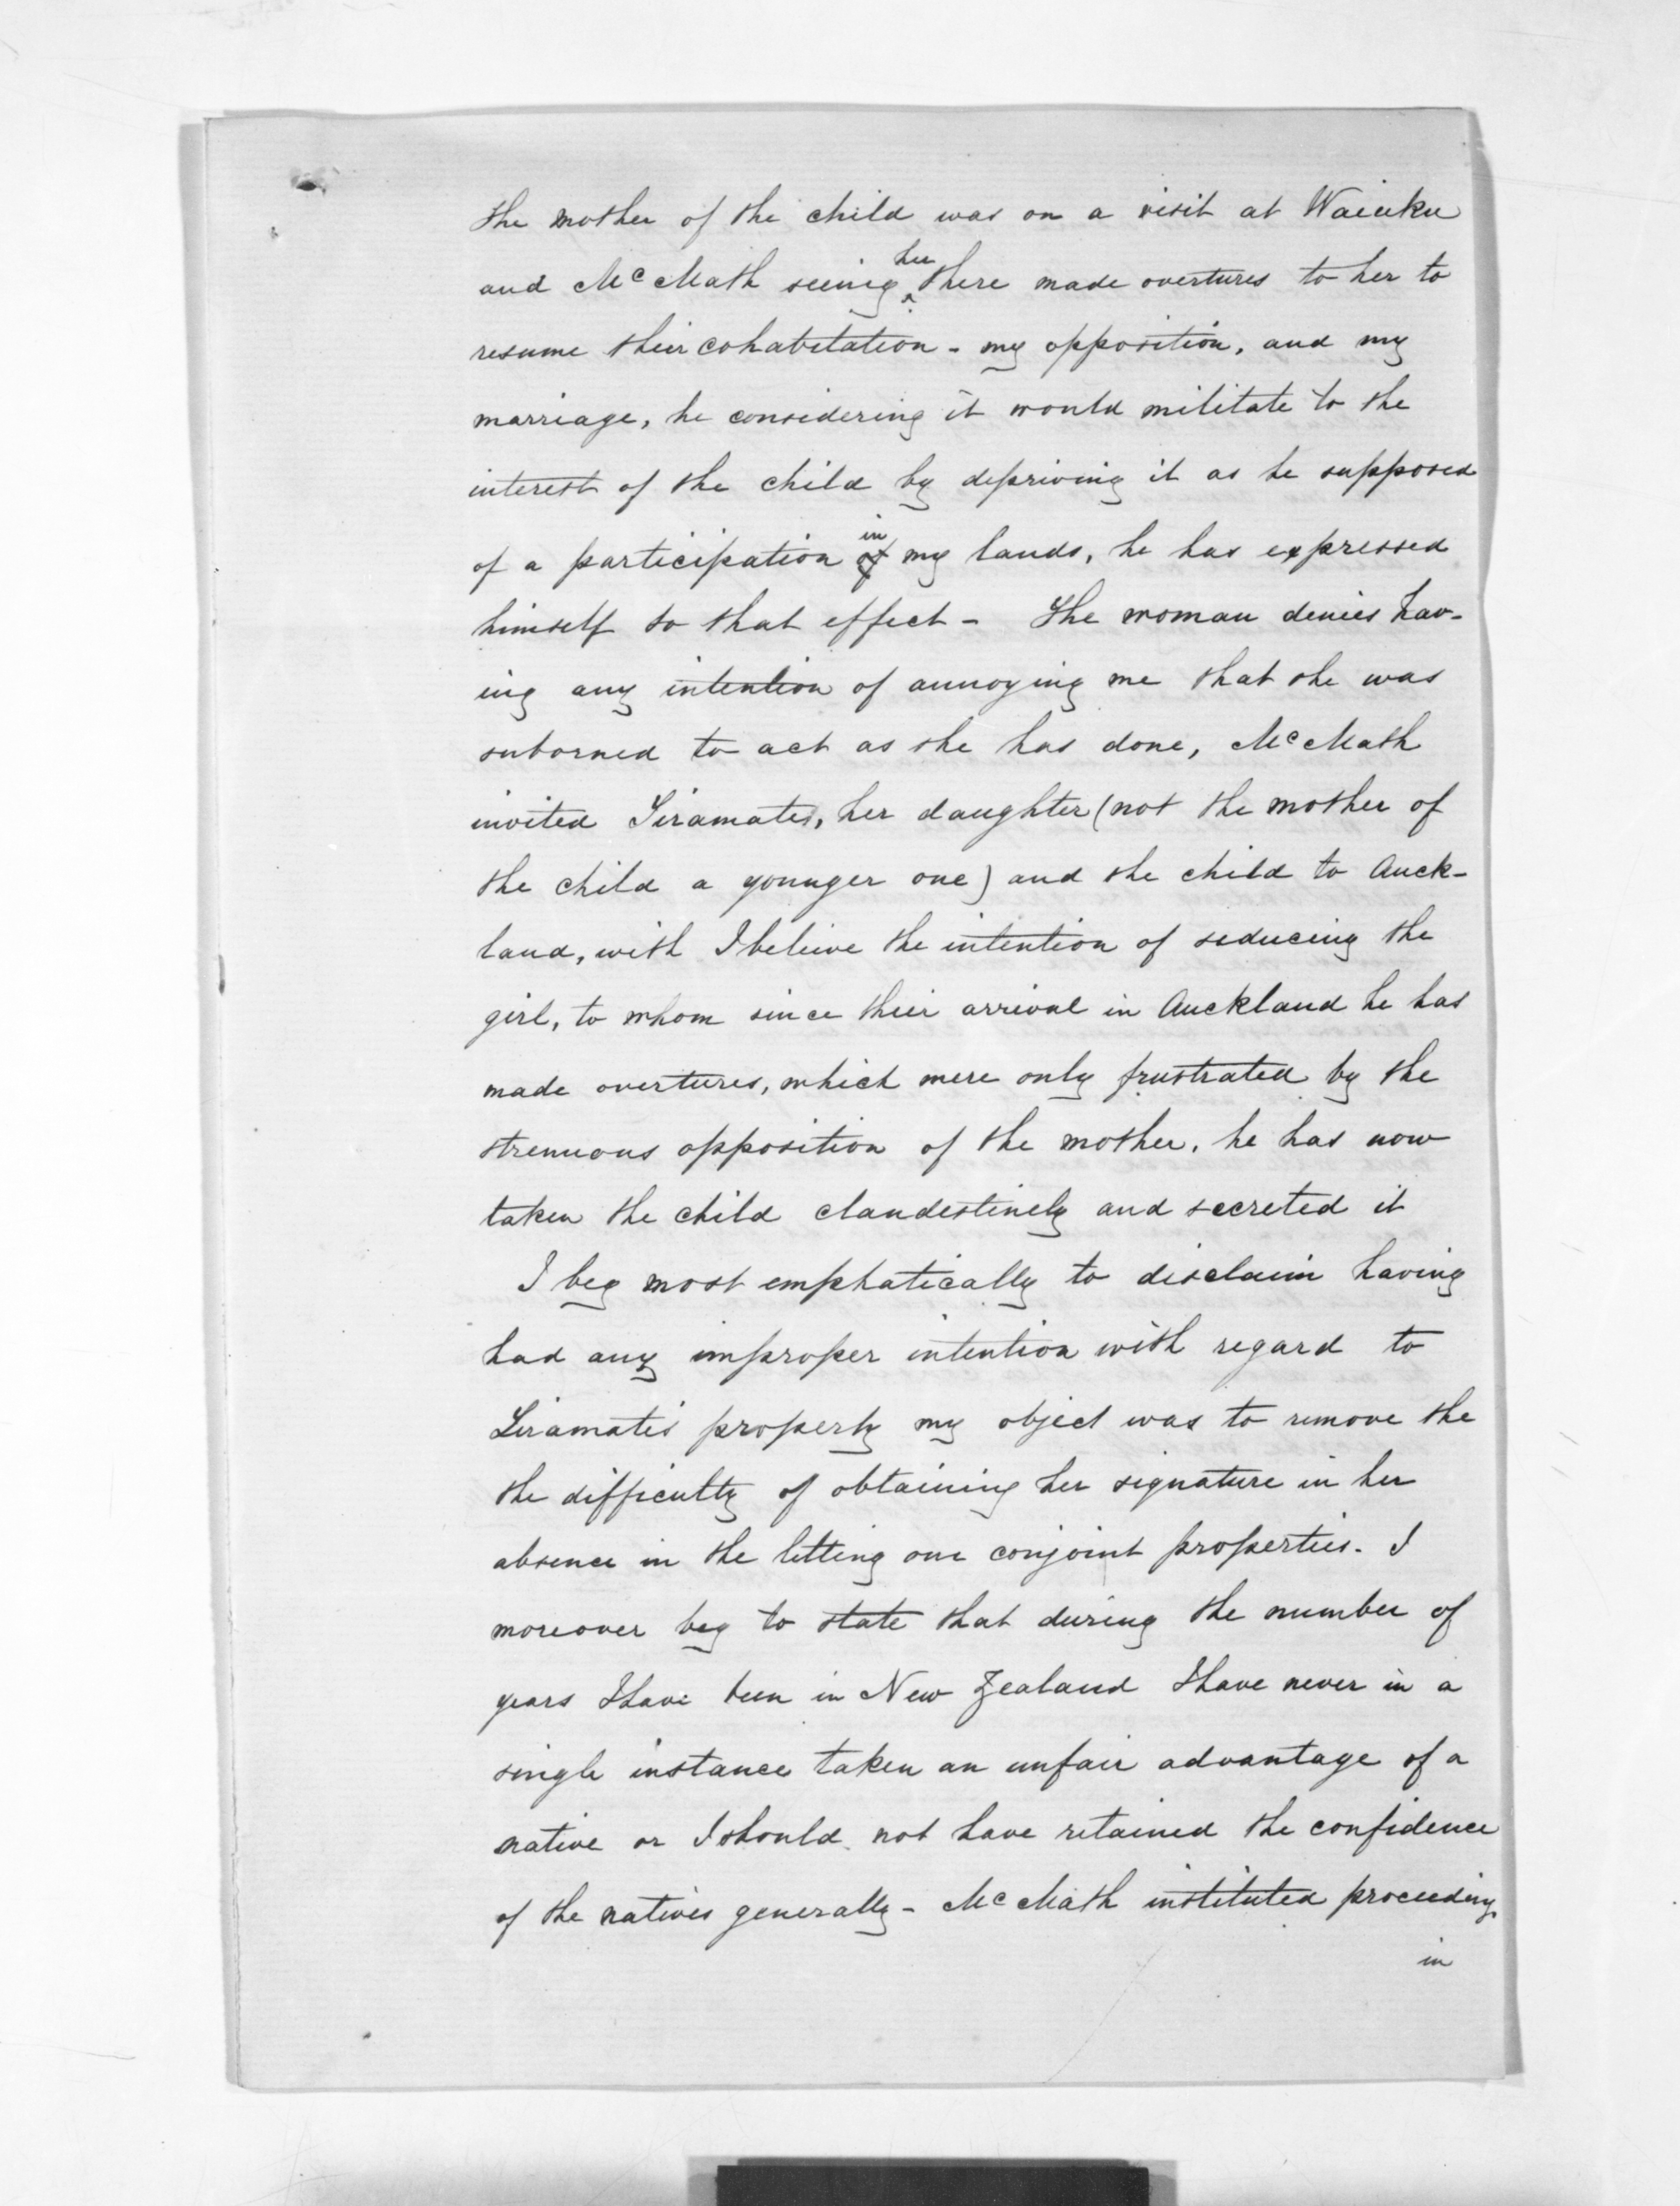 The mother of the child was on a visit at Waiuku
and McMath seeing her there made overtures to her to
resume their cohabitation - my opposition, and my
marriage, he considering it would militate to the
interest of the child by depriving it as he supposed
of a participation in my lands, he has expressed
himself to that effect - The woman denies hav-
ing any intention of annoying me that she was
suborned to act as she has done, McMath
invited Tiramate, her daughter (not the mother of
the child a younger one) and the child to Auck-
land, with I beleive the intention of seducing the
girl, to whom since their arrival in Auckland he has
made overtures, which were only frustrated by the
strenuous opposition of the mother, he has now
taken the child clandestinely and secreted it
I beg most emphatically to disclaim having
had any improper intention with regard to
Tiramate's property my object was to remove the
the difficulty of obtaining her signature in her
absence in the letting our conjoint properties. I
moreover beg to state that during the number of
years I have been in New Zealand I have never in a
single instance taken an unfair advantage of a
native or I should not have retained the confidence
of the natives generally - McMath instituted proceedings
in